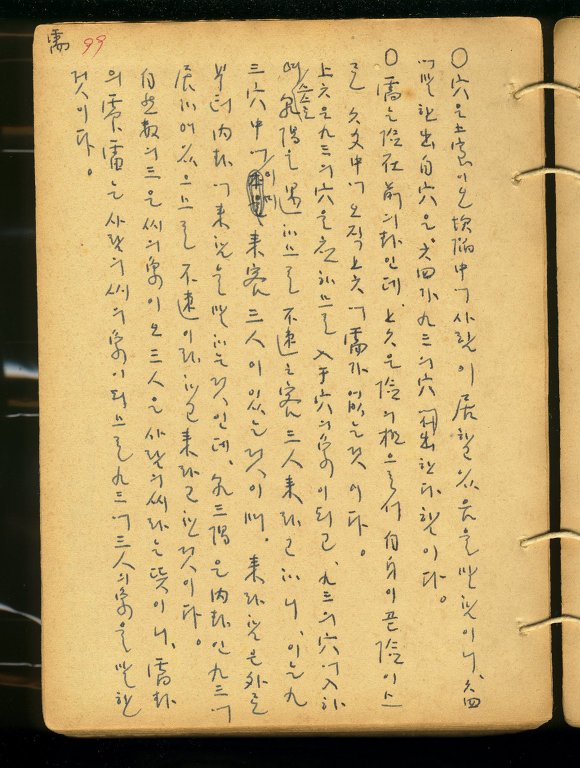 需 99
○穴은 土室이오 坎陷中에 사람이 居함을
말함이니, 六四
에 한 出自穴은, 六四가 九三의 穴에서 出한다 함이다.
○需는 險在前의 卦인데, 上六은 險의 極으로서 自身이 곧 險이므
로 六爻中에 오직 上六에 需가 없는 것이다.
上六은 九三의 穴을 應하므로 入于穴의 象이 되고, 九三의 穴에 入하
乾陽을 하므로 不速之客三人來라고 하니, 이는 九
三穴中에 이미 來客 三人이 있는 것이며, 來라 함은 外로
부터 內卦에 來함을 말하는 것인데, 乾三陽은 內卦인 九三에
居하여 있으므로 不速이라 하고 來라고 한 것이다.
自然數의 三은 씨의 象이오 三人은 사람의 씨라는 뜻이니, 需卦
의 需는 사람의 씨의 象이 되므로 九三에 三人의 象을 말한
것이다.